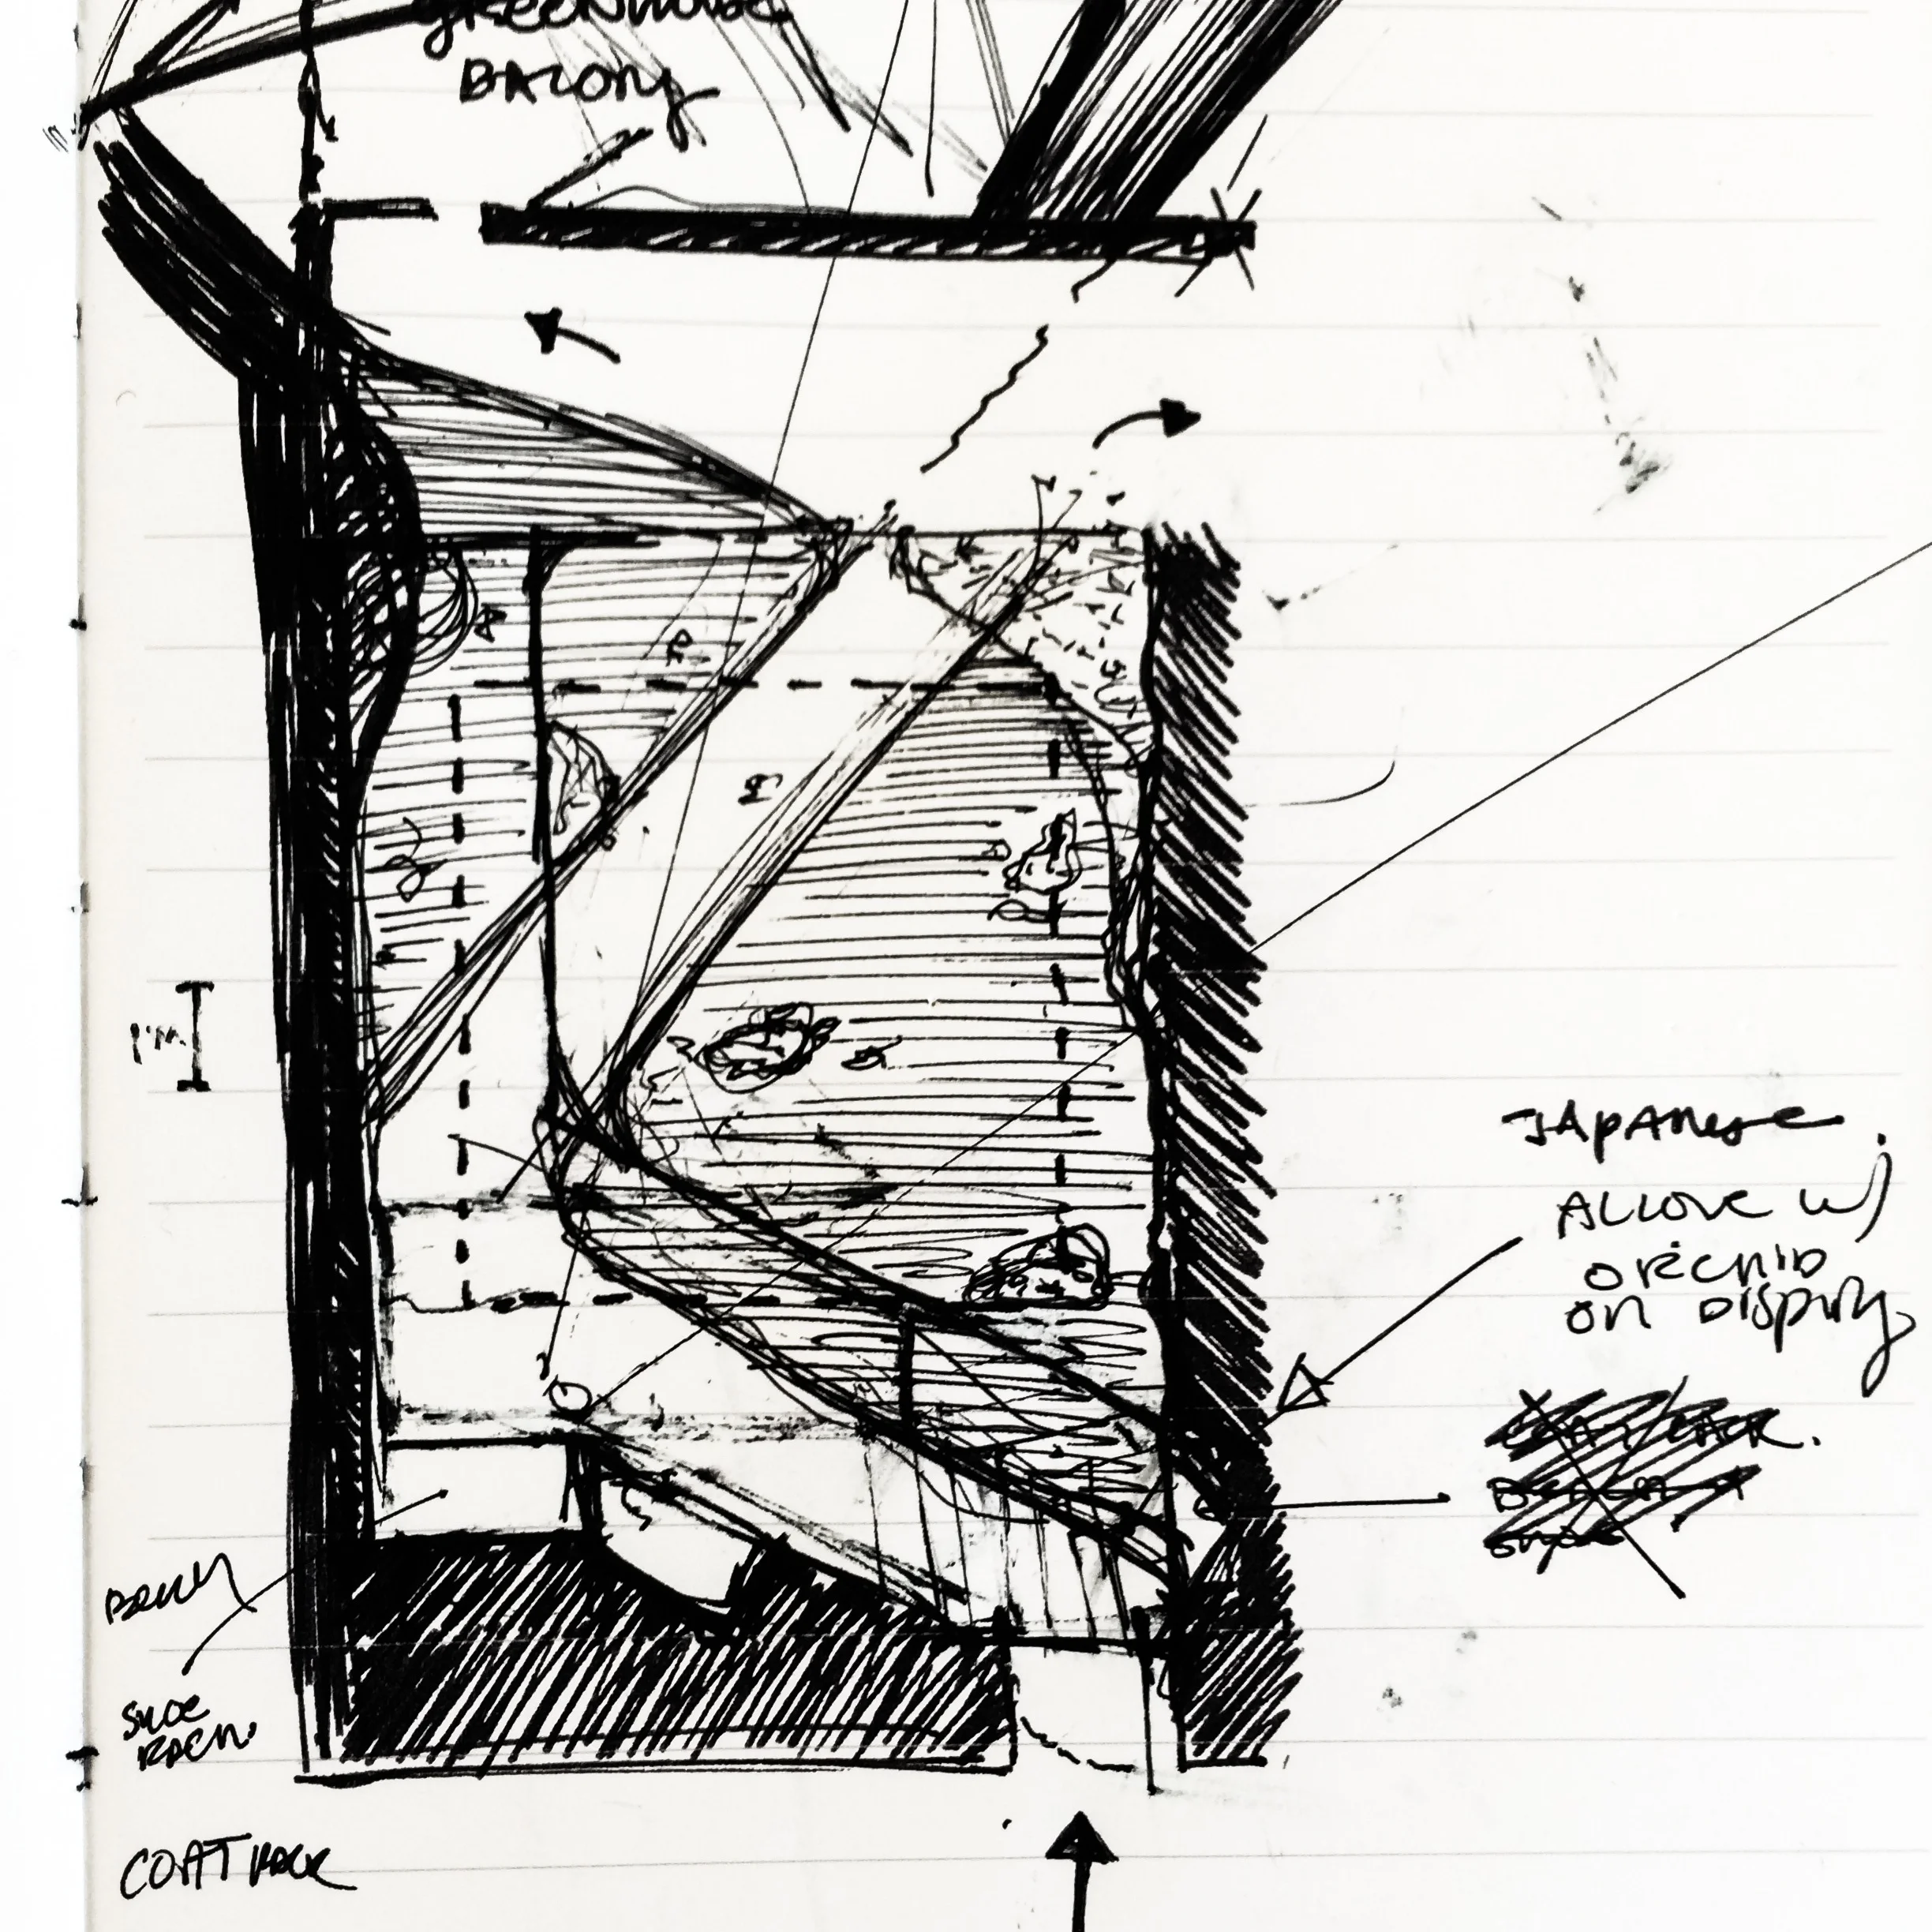 greenhouse
BALCONY
1M
JAPANESE
ALCOVE W/
ORCHID
ON DISPLAY
BENCH
SHOE
RACK
COAT RACK